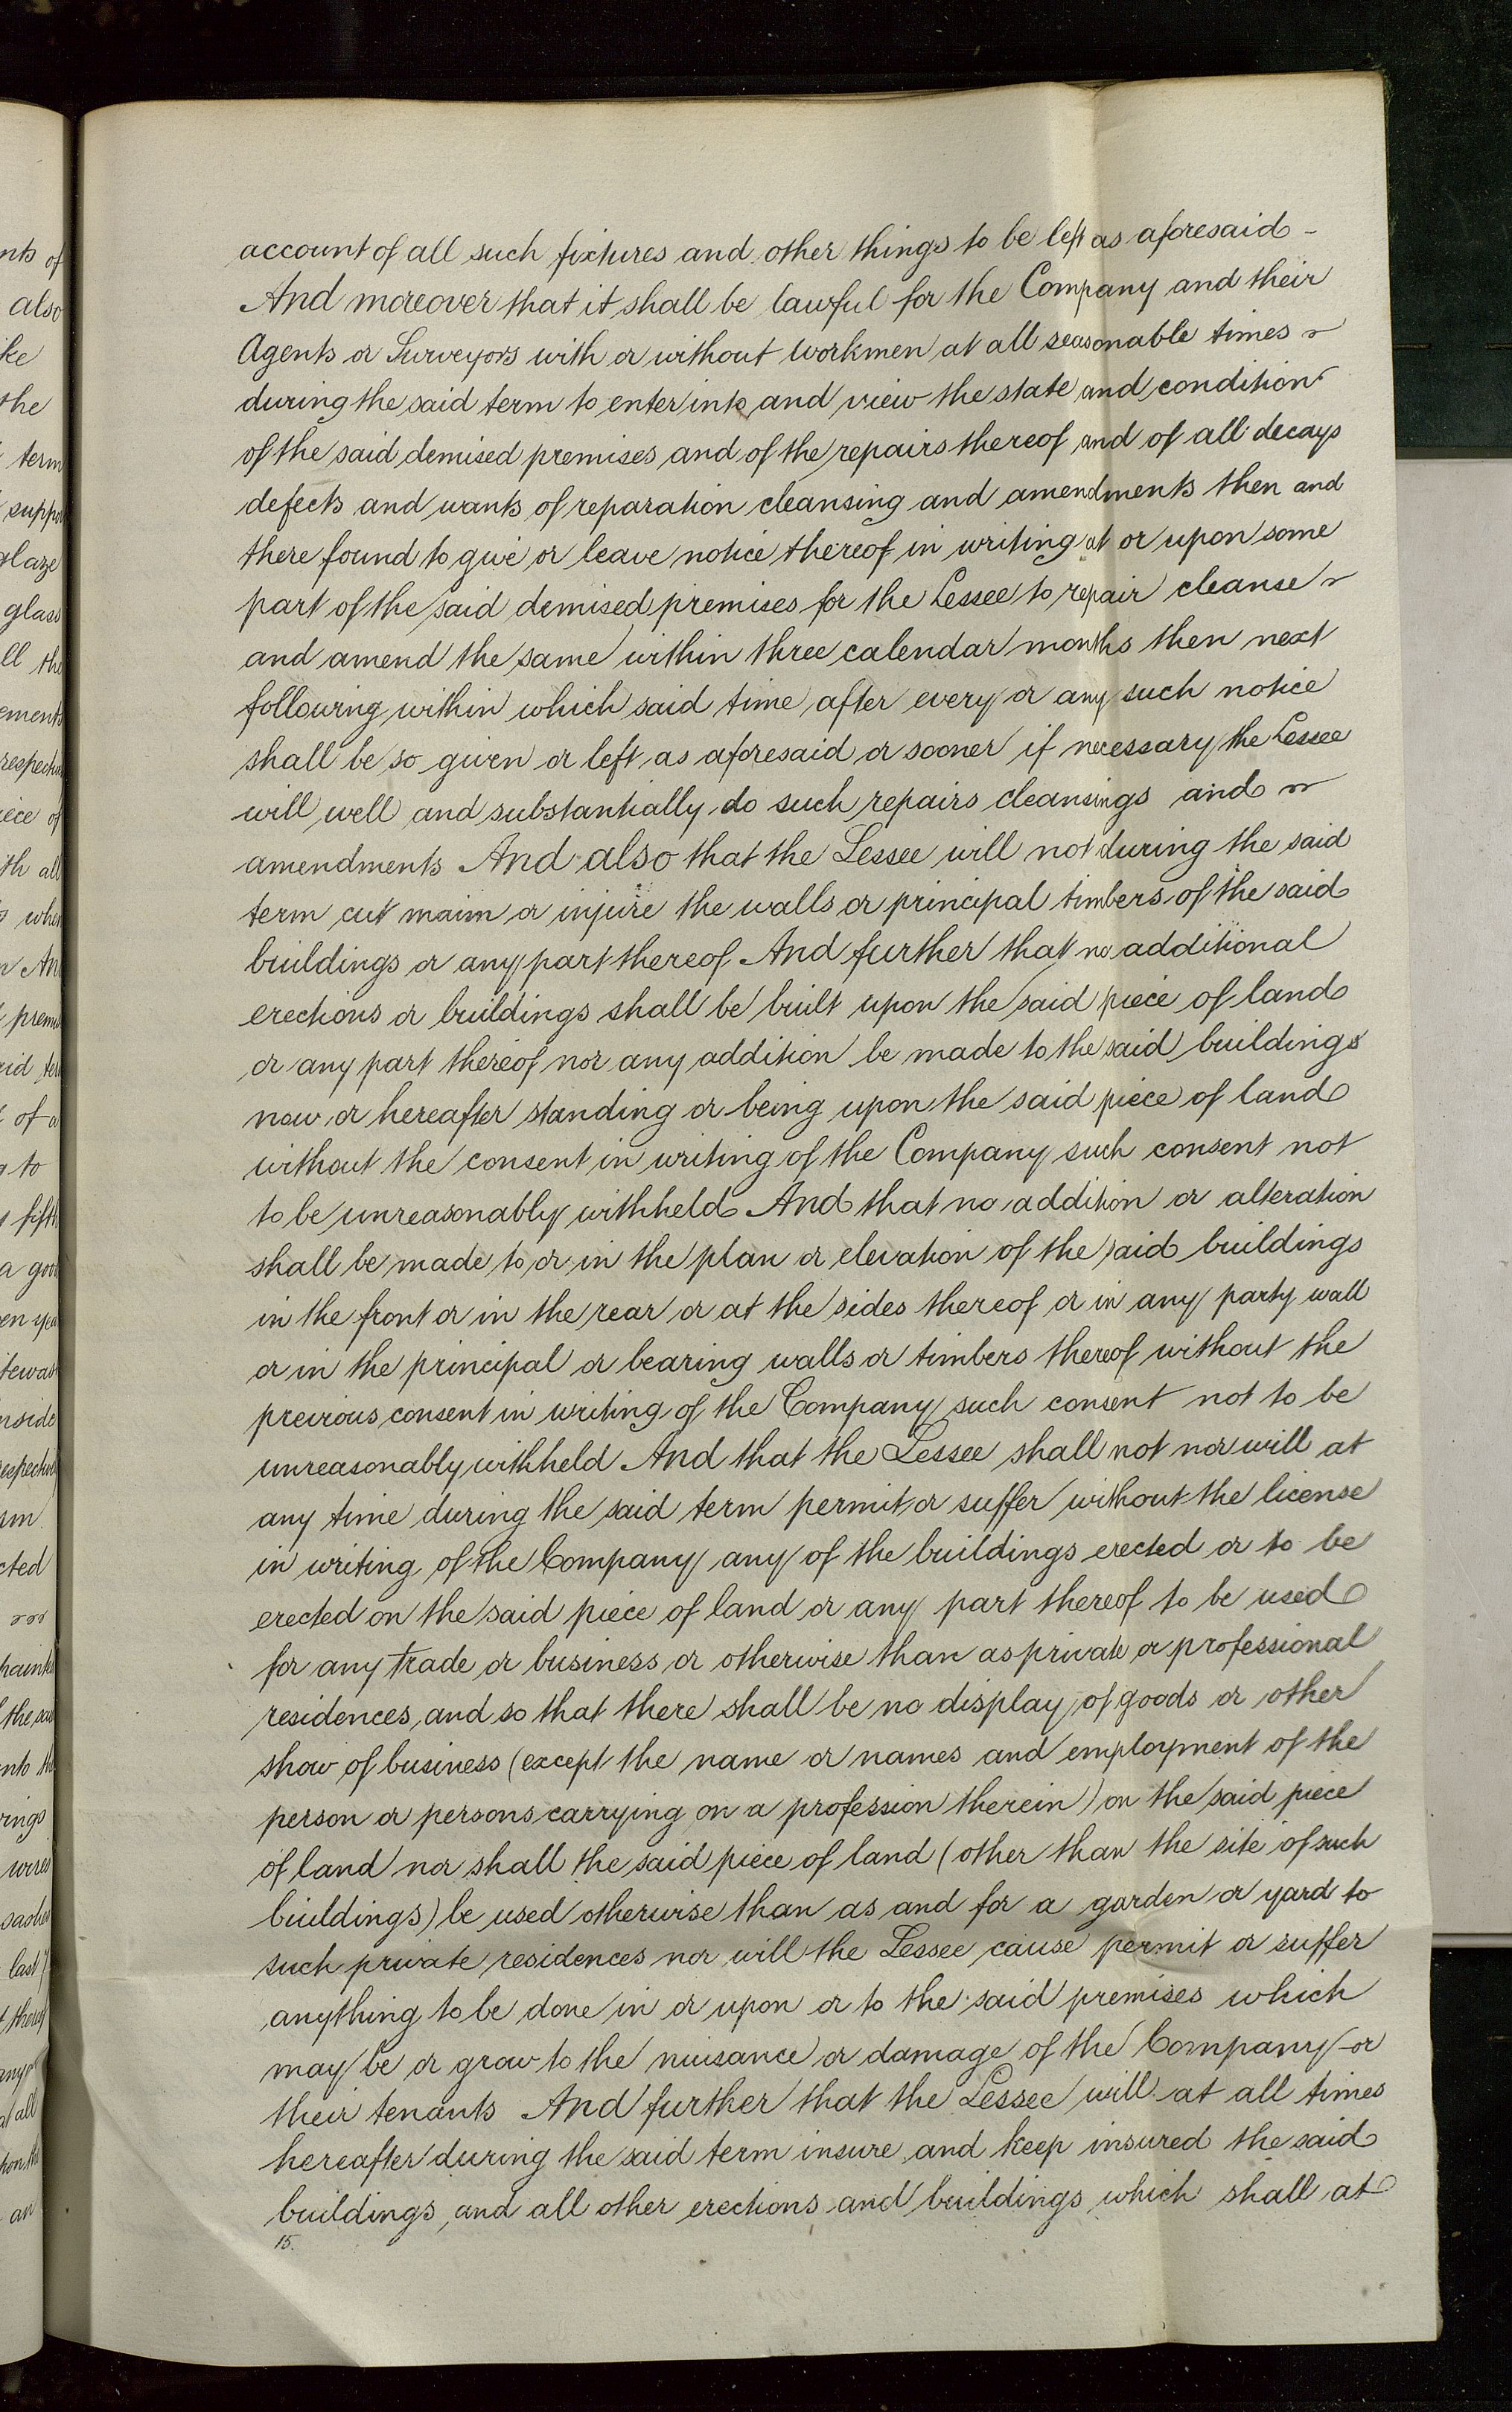 account of all such fixtures and other things to be left as aforesaid -
And moreover that it shall be lawful for the Company and their
Agents or Surveyors with or without workmen at all seasonable times
during the said term to enter into and view the state and condition
of the said demised premises and of the repairs thereof and of all decays
defects and wants of reparation cleansing and amendments then and
there found to give or leave notice thereof in writing at or upon some
part of the said demised premises for the Lessee to repair cleanse
and amend the same within three calendar months then next
following within which said time after every or any such notice
shall be so given or left as aforesaid or sooner if necessary the Lessee
will well and substantially do such repairs cleansings and
amendments And also that the Lessee will not during the said
term cut maim or injure the walls or principal timbers of the said
buildings or any part thereof And further that no additional
erections or buildings shall be built upon the said piece of land
or any part thereof nor any addition be made to the said buildings
now or hereafter standing or being upon the said piece of land
without the consent in writing of the Company such consent not
to be unreasonably withheld And that no addition or alteration
shall be made to or in the plan or elevation of the said buildings
in the front or in the rear or at the sides thereof or in any party wall
or in the principal or bearing walls or timbers thereof without the
previous consent in writing of the Company such consent not to be
unreasonably withheld And that the Lessee shall not nor will at
any time during the said term permit or suffer without the license
in writing of the Company any of the buildings erected or to be
erected on the said piece of land or any part thereof to be used
for any trade or business or otherwise than as private or professional
residences, and so that there shall be no display of goods or other
show of business (except the name or names and employment of the
person or persons carrying on a profession therein) on the said piece
of land nor shall the said piece of land (other than the site of such
buildings) be used otherwise than as and for a garden or yard to
such private residences nor will the Lessee cause permit or suffer
anything to be done in or upon or to the said premises which
may be or grow to the nuisance or damage of the Company or
their tenants And further that the Lessee will at all times
hereafter during the said term insure and keep insured the said
buildings, and all other erections and buildings which shall at
15.